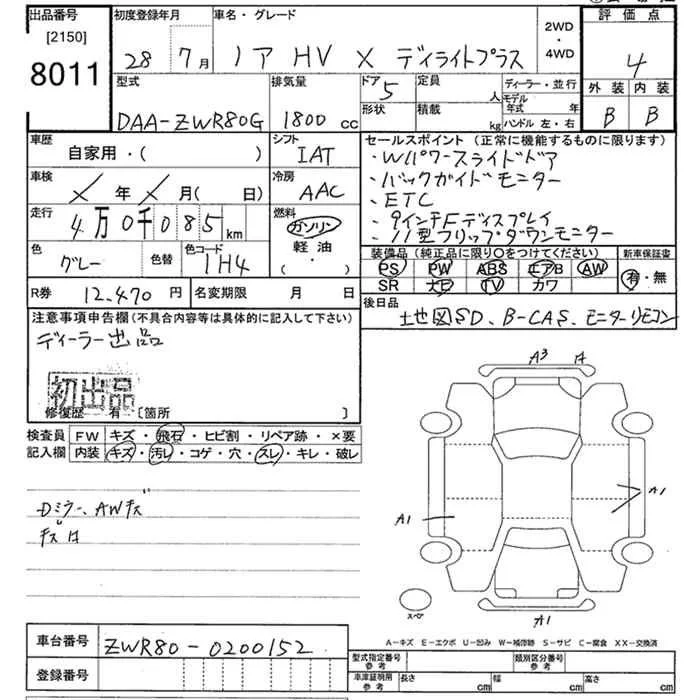 出品番号 初度登録年月 車名・グレード 2WD・4WD 評価点
[2150]
8011 28 7月 ノア HV X ディライトプラス 4
型式 排気量 ドア 5 定員 人 ディーラー・並行 外装 内装
形状 積載 kg モデル年式 年 B B
DAA-ZWR80G 1800 cc ハンドル 左・右
車歴 シフト セールスポイント (正常に機能するものに限ります)
自家用・( ) IAT ・Wパワースライドドア
車検 冷房 ・バックガイドモニター
X 年 X 月( 日) AAC ・ETC
走行 燃料 ・9インチFディスプレイ
4万0千085km ガソリン ・11型フリップダウンモニター
軽油・
色 色替 色コード 装備品 (純正品に限り○をつけてください) 新車保証書
グレー 1H4 PS PW ABS エアB AW 有・無
SR ナビ TV カワ
R券 12,470 円 名変期限 月 日 後日品
地図SD、B-CAS、モニターリモコン
注意事項申告欄(不具合内容等は具体的に記入して下さい)
ディーラー出品
初出品
修復歴 有 [箇所 ]
検査員 FW キズ・飛石・ヒビ割・リペア跡・×要
記入欄 内装 キズ・汚レ・コゲ・穴・スレ・キレ・破レ
A3
A1
Dミラー、AWキズ
A1
スペア
A1
A-キズ E-エクボ U-凹み W-補修跡 S-サビ C-腐食 XX-交換済
車台番号 ZWR80-0200152
登録番号
型式指定番号参考 類別区分番号参考
車庫証明用参考 長さ cm 幅 cm 高さ cm